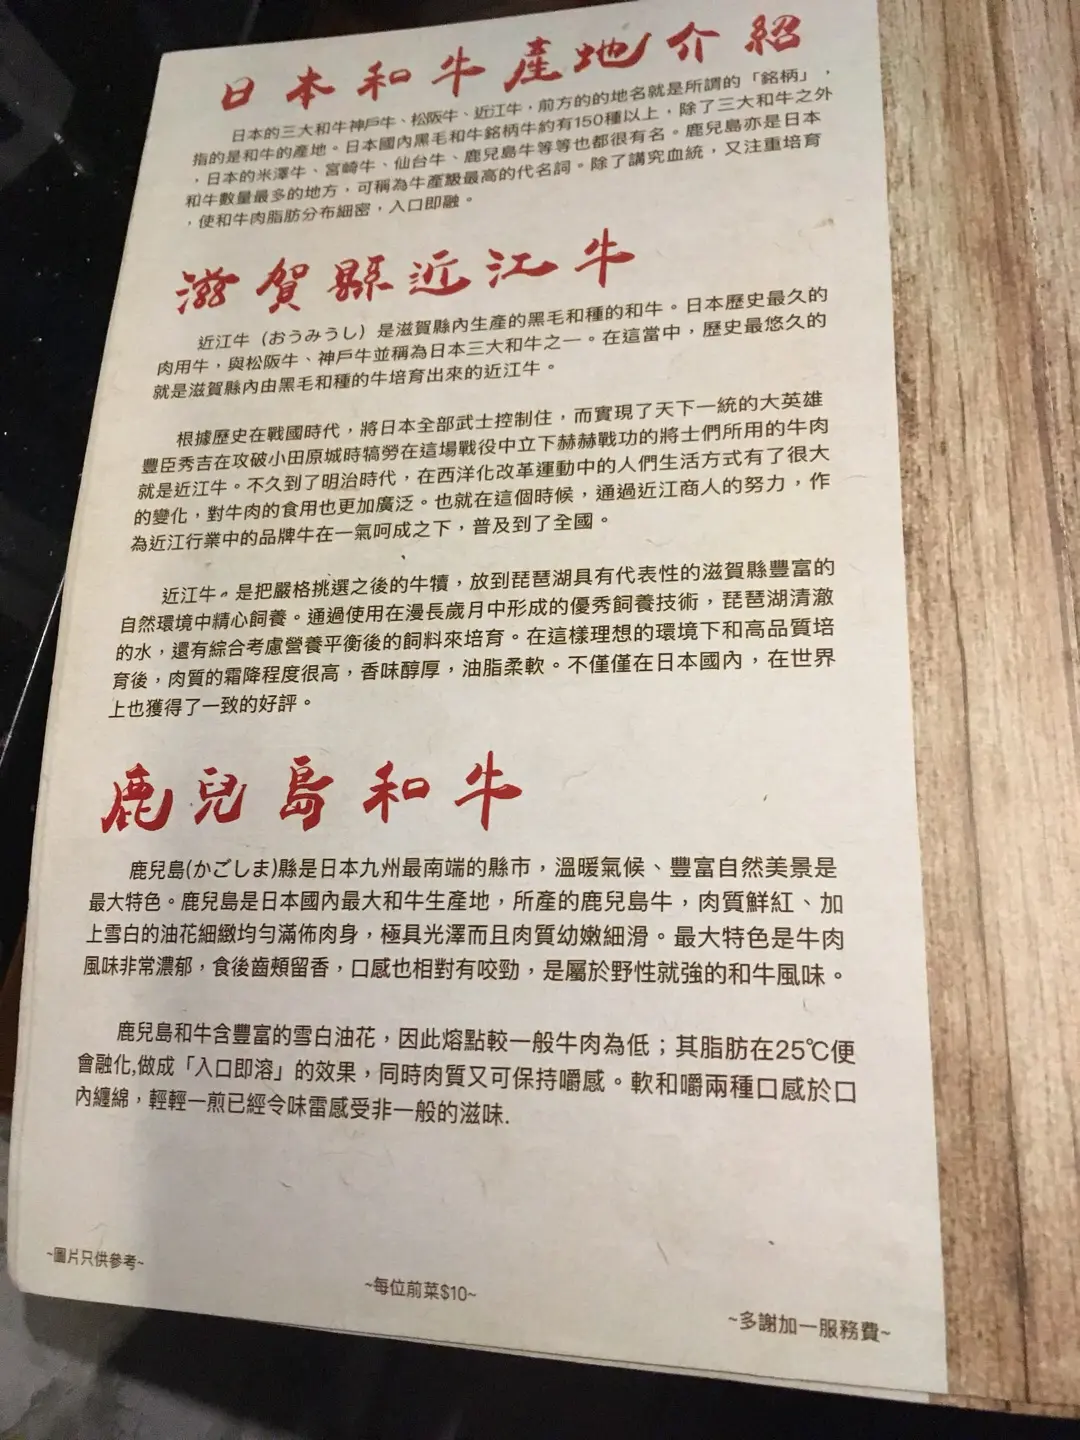 日本和牛產地介紹
日本的三大和牛神戶牛、松阪牛、近江牛，前方的的地名就是所謂的「銘柄」，
指的是和牛的產地。日本國內黑毛和牛銘柄牛約有150種以上，除了三大和牛之外
，日本的米澤牛、宮崎牛、仙台牛、鹿兒島牛等等也都很有名。鹿兒島亦是日本
和牛數量最多的地方，可稱為牛產級最高的代名詞。除了講究血統，又注重培育
，使和牛肉脂肪分布細密，入口即融。
滋賀縣近江牛
近江牛（おうみうし）是滋賀縣內生產的黑毛和種的和牛。日本歷史最久的
肉用牛，與松阪牛、神戶牛並稱為日本三大和牛之一。在這當中，歷史最悠久的
就是滋賀縣內由黑毛和種的牛培育出來的近江牛。
根據歷史在戰國時代，將日本全部武士控制住，而實現了天下一統的大英雄
豐臣秀吉在攻破小田原城時犒勞在這場戰役中立下赫赫戰功的將士們所用的牛肉
就是近江牛。不久到了明治時代，在西洋化改革運動中的人們生活方式有了很大
的變化，對牛肉的食用也更加廣泛。也就在這個時候，通過近江商人的努力，作
為近江行業中的品牌牛在一氣呵成之下，普及到了全國。
近江牛。是把嚴格挑選之後的牛犢，放到琵琶湖具有代表性的滋賀縣豐富的
自然環境中精心飼養。通過使用在漫長歲月中形成的優秀飼養技術，琵琶湖清澈
的水，還有綜合考慮營養平衡後的飼料來培育。在這樣理想的環境下和高品質培
育後，肉質的霜降程度很高，香味醇厚，油脂柔軟。不僅僅在日本國內，在世界
上也獲得了一致的好評。
鹿兒島和牛
鹿兒島(かごしま)縣是日本九州最南端的縣市，溫暖氣候、豐富自然美景是
最大特色。鹿兒島是日本國內最大和牛生產地，所產的鹿兒島牛，肉質鮮紅、加
上雪白的油花細緻均勻滿佈肉身，極具光澤而且肉質幼嫩細滑。最大特色是牛肉
風味非常濃郁，食後齒頰留香，口感也相對有咬勁，是屬於野性就強的和牛風味。
鹿兒島和牛含豐富的雪白油花，因此熔點較一般牛肉為低；其脂肪在25℃便
會融化,做成「入口即溶」的效果，同時肉質又可保持嚼感。軟和嚼兩種口感於口
內纏綿，輕輕一煎已經令味雷感受非一般的滋味.
~圖片只供參考~
~每位前菜$10~
~多謝加一服務費~